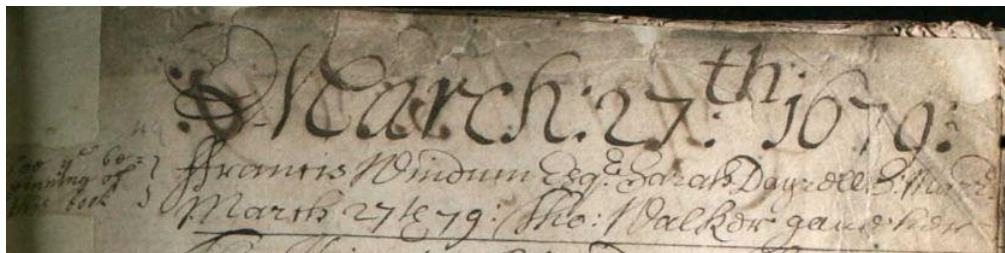 March: 27th: 1679:
See ye be=
ginning of
this book
ffrancis Windum Esqe. & Sarah Dayrell. S: Marr
March 27th 79: Tho: Walker gave her